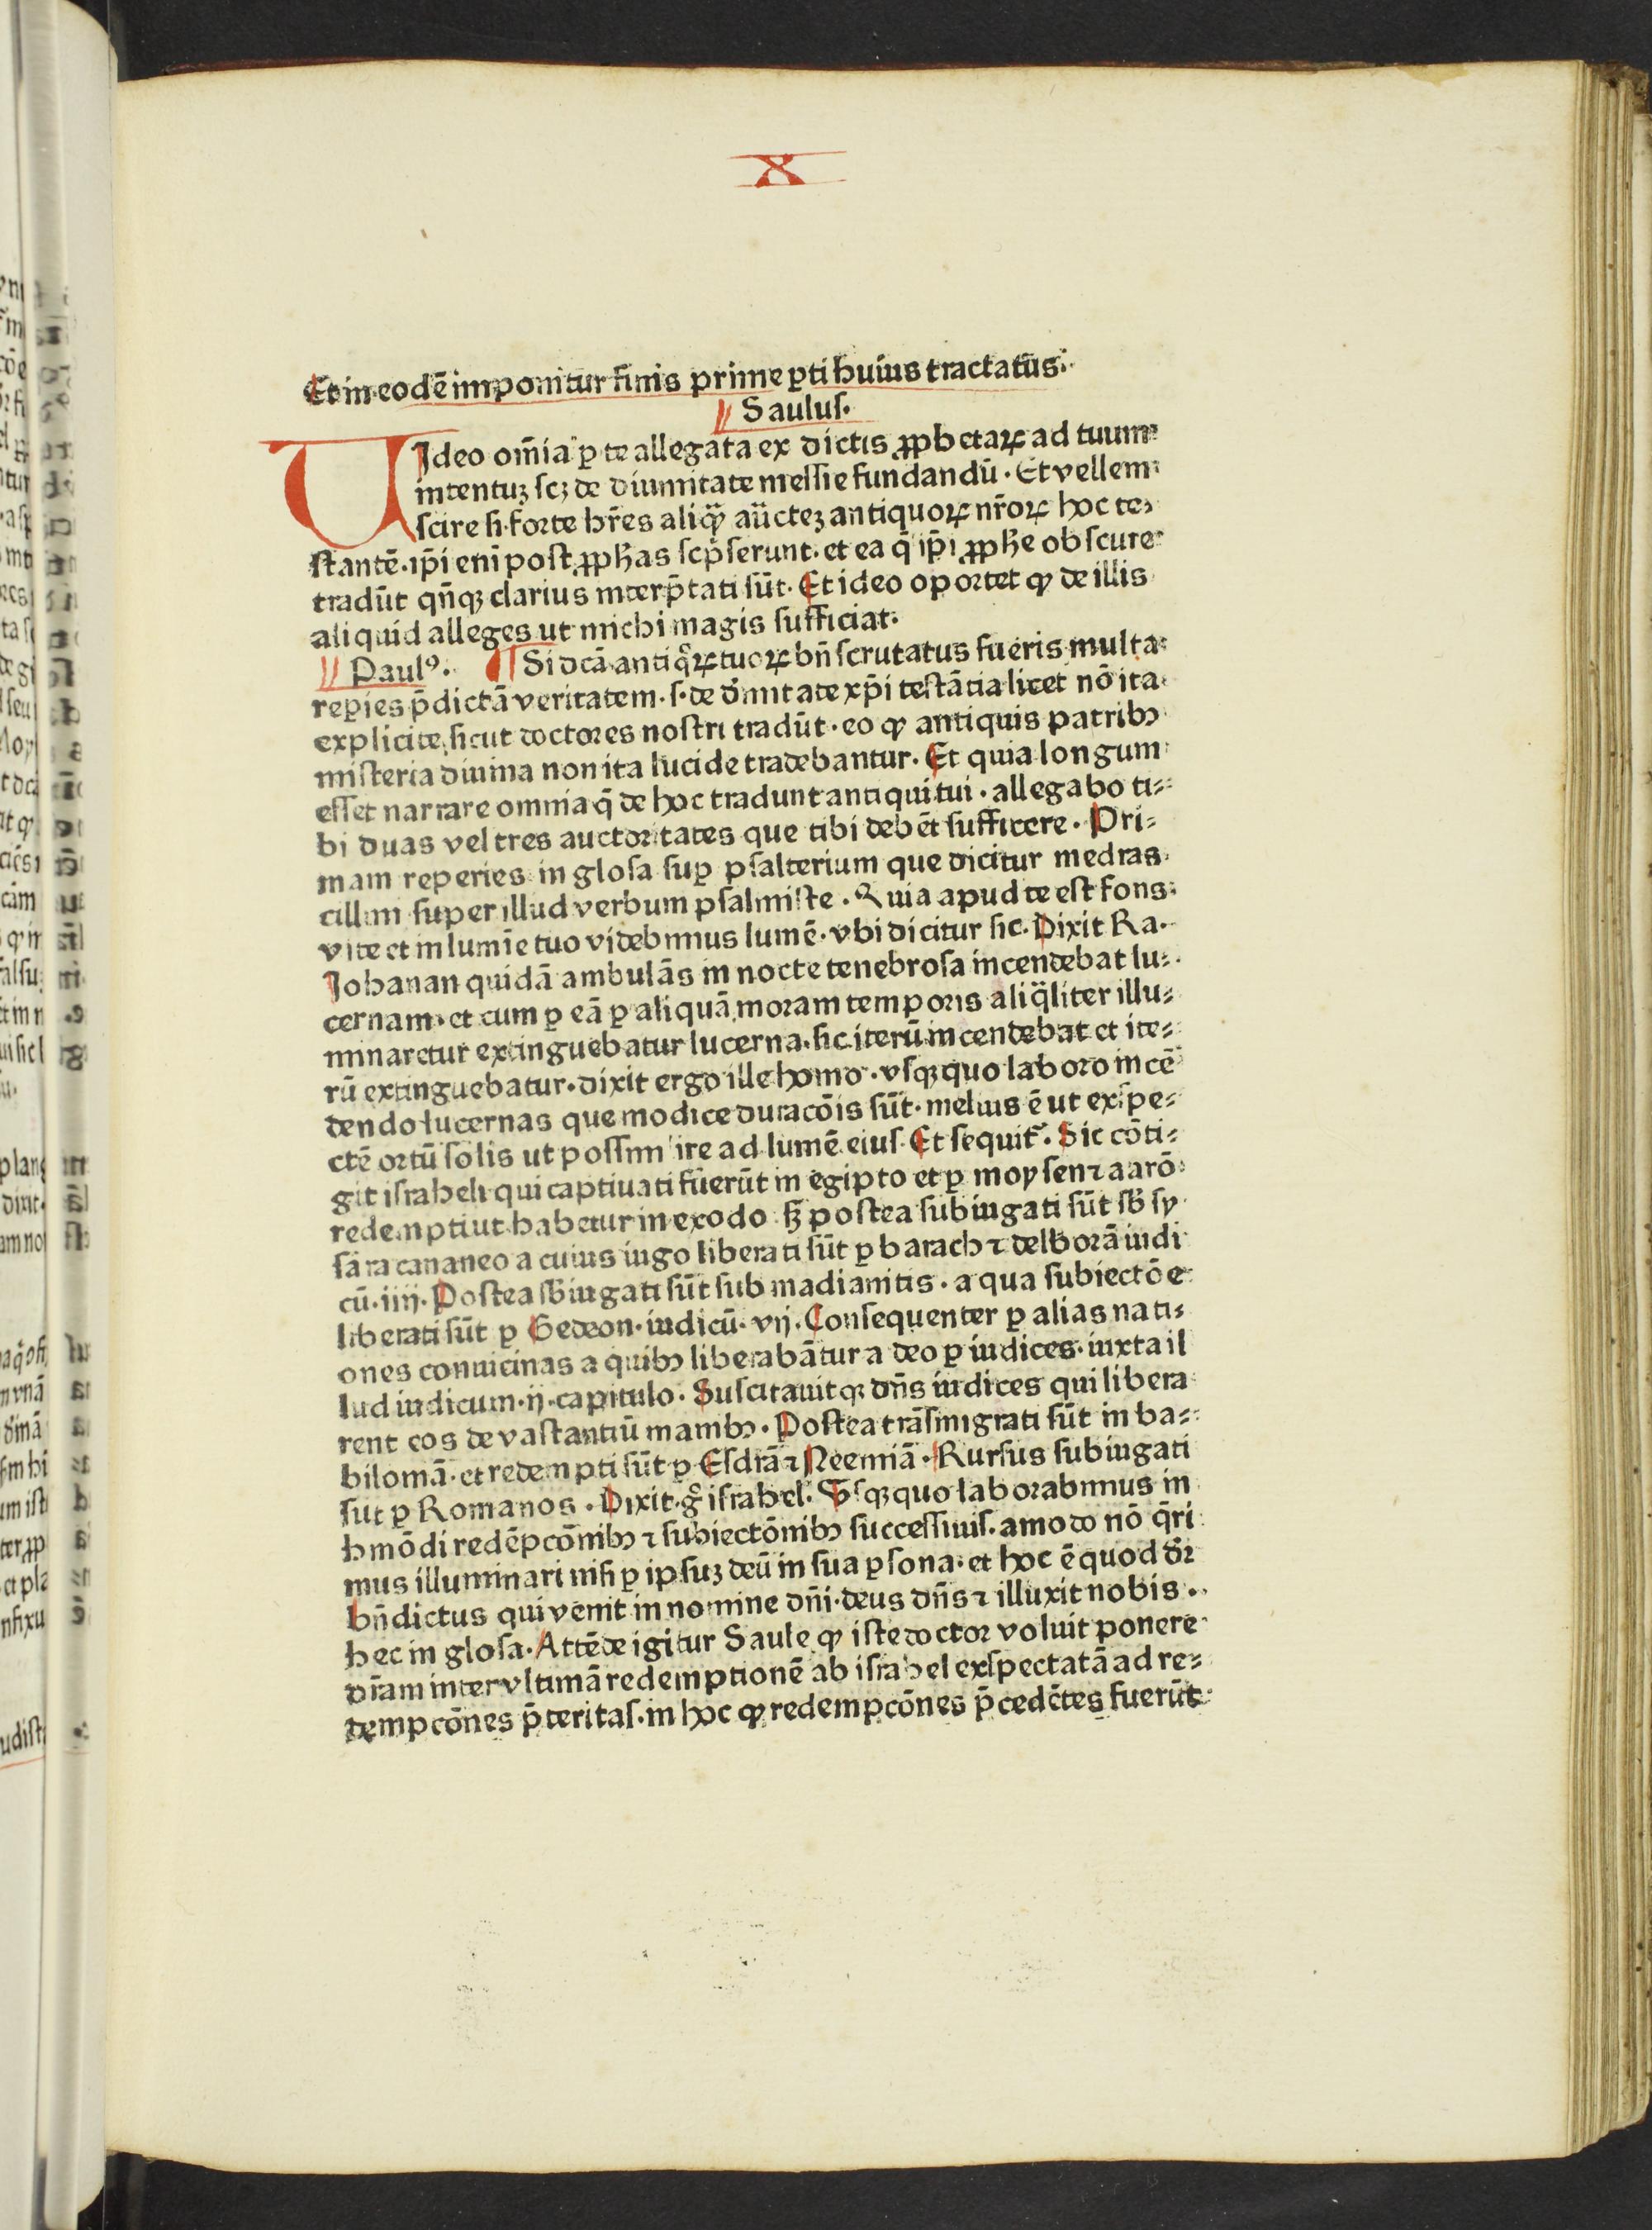 X
Et in eodē imponitur finis prime ꝑti huius tractatus.
Saulus.
UIdeo om̄ia ꝑ te allegata ex dictis ꝓphetaꝝ ad tuum
intentuꝫ scꝫ de diuinitate messie fundandū. Et vellem
scire si forte hr̄es aliq̄ auctez antiquoꝝ nr̄oꝝ hoc te⸗
stantē. ip̄i eni post ꝓpħas scp̄serunt. et ea q̄ ip̄i ꝓpħe obscure
tradūt qn̄qꝫ clarius interp̄tati sūt. Et ideo oportet ꝙ de illis
aliquid alleges ut michi magis sufficiat.
Paulꝰ. ¶ Si dcā antiq̄ꝝ tuoꝝ bn̄ scrutatus fueris multa
reꝑies p̄dictā veritatem. s. de diuinitate xp̄i testātia licet nō ita
explicite sicut doctores nostri tradūt. eo ꝙ antiquis patribꝫ
misteria diuina non ita lucide tradebantur. Et quia longum
esset narrare omnia q̄ de hoc tradunt antiqui tui. allegabo ti⸗
bi duas vel tres auctoritates que tibi debēt sufficere. Pri⸗
mam reperies in glosa suꝑ psalterium que dicitur medras
cillim super illud verbum psalmiste. Quia apud te est fons
vite et in lumīe tuo videbimus lumē. vbi dicitur sic. Dixit Ra.
Johanan quidā ambulās in nocte tenebrosa incendebat lu⸗
cernam. et cum ꝑ eā ꝑ aliquā moram temporis aliq̄liter illu⸗
minaretur extinguebatur lucerna. sic iterū incendebat et ite⸗
rū extinguebatur. dixit ergo ille homo. vsqꝫ quo laboro incē
dendo lucernas que modice duracōis sūt. melius ē ut exspe⸗
ctē ortū solis ut possim ire ad lumē eius. Et sequit̄. Sic cōti⸗
git israheli qui captiuati fuerūt in egipto et ꝑ moysen ⁊ aarō
redempti ut habetur in exodo. sꝫ postea subiugati sūt sb̄ sy
sāra cananeo a cuius iugo liberati sūt ꝑ barach ⁊ delborā iudi
cū. iiij. Postea sb̄iugati sūt sub madianitis. a qua subiectōe
liberati sūt ꝑ Gedeon. iudicū. vij. Consequenter ꝑ alias nati⸗
ones conuicinas a quibꝫ liberabātur a deo ꝑ iudices. iuxta il
lud iudicum. ij. capitulo. Suscitauitqꝫ dn̄s iudices qui libera
rent eos de vastantiū manibꝫ. Postea trāsmigrati sūt in ba⸗
biloniā. et redempti sūt ꝑ Esdrā ⁊ Neemiā. Rursus subiugati
sūt ꝑ Romanos. Dixit gͦ israhel. Vsqꝫ quo laborabimus in
hmōdi redēpcōnibꝫ ⁊ subiectōnibꝫ successiuis. amodo nō q̄ri
mus illuminari nisi ꝑ ipsuꝫ deū in sua ꝑsona. et hoc ē quod dr̄
bn̄dictus qui venit in nomine dn̄i. deus dn̄s ⁊ illuxit nobis.
hec in glosa. Attēde igitur Saule ꝙ iste doctor voluit ponere
dr̄am inter vltimā redemptionē ab israhel exspectatā ad re⸗
dempcōnes p̄teritas. in hoc ꝙ redempcōnes p̄cedētes fuerūt